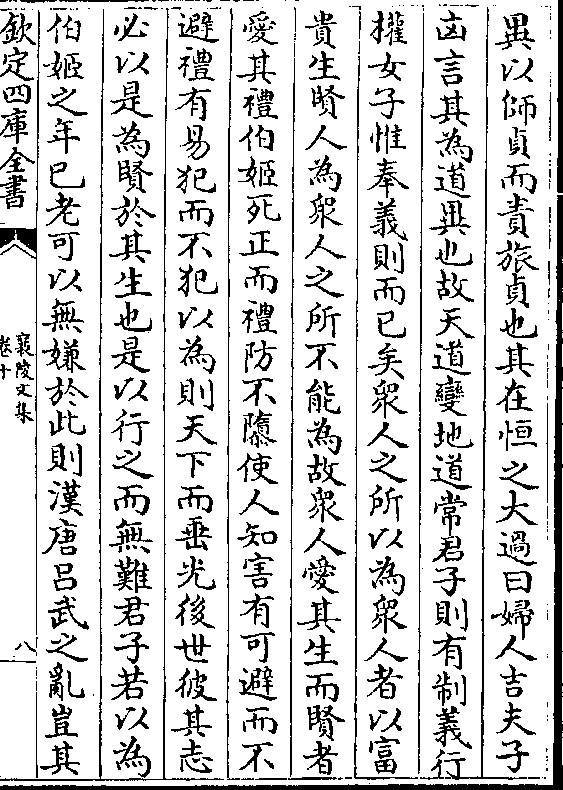 異以師貞而責旅貞也其在恒之大過曰婦人吉夫子
凶言其為道異也故天道變地道常君子則有制義行
權女子惟奉義則而已矣衆人之所以為衆人者以富
貴生賢人為衆人之所不能為故衆人愛其生而賢者
愛其禮伯姬死正而禮防不隳使人知害有可避而不
避禮有易犯而不犯以為則天下而垂光後世彼其志
必以是為賢於其生也是以行之而無難君子若以為
伯姬之年已老可以無嫌於此則漢唐呂武之亂豈其
欽定四庫全書
襄陵文集
卷十
八